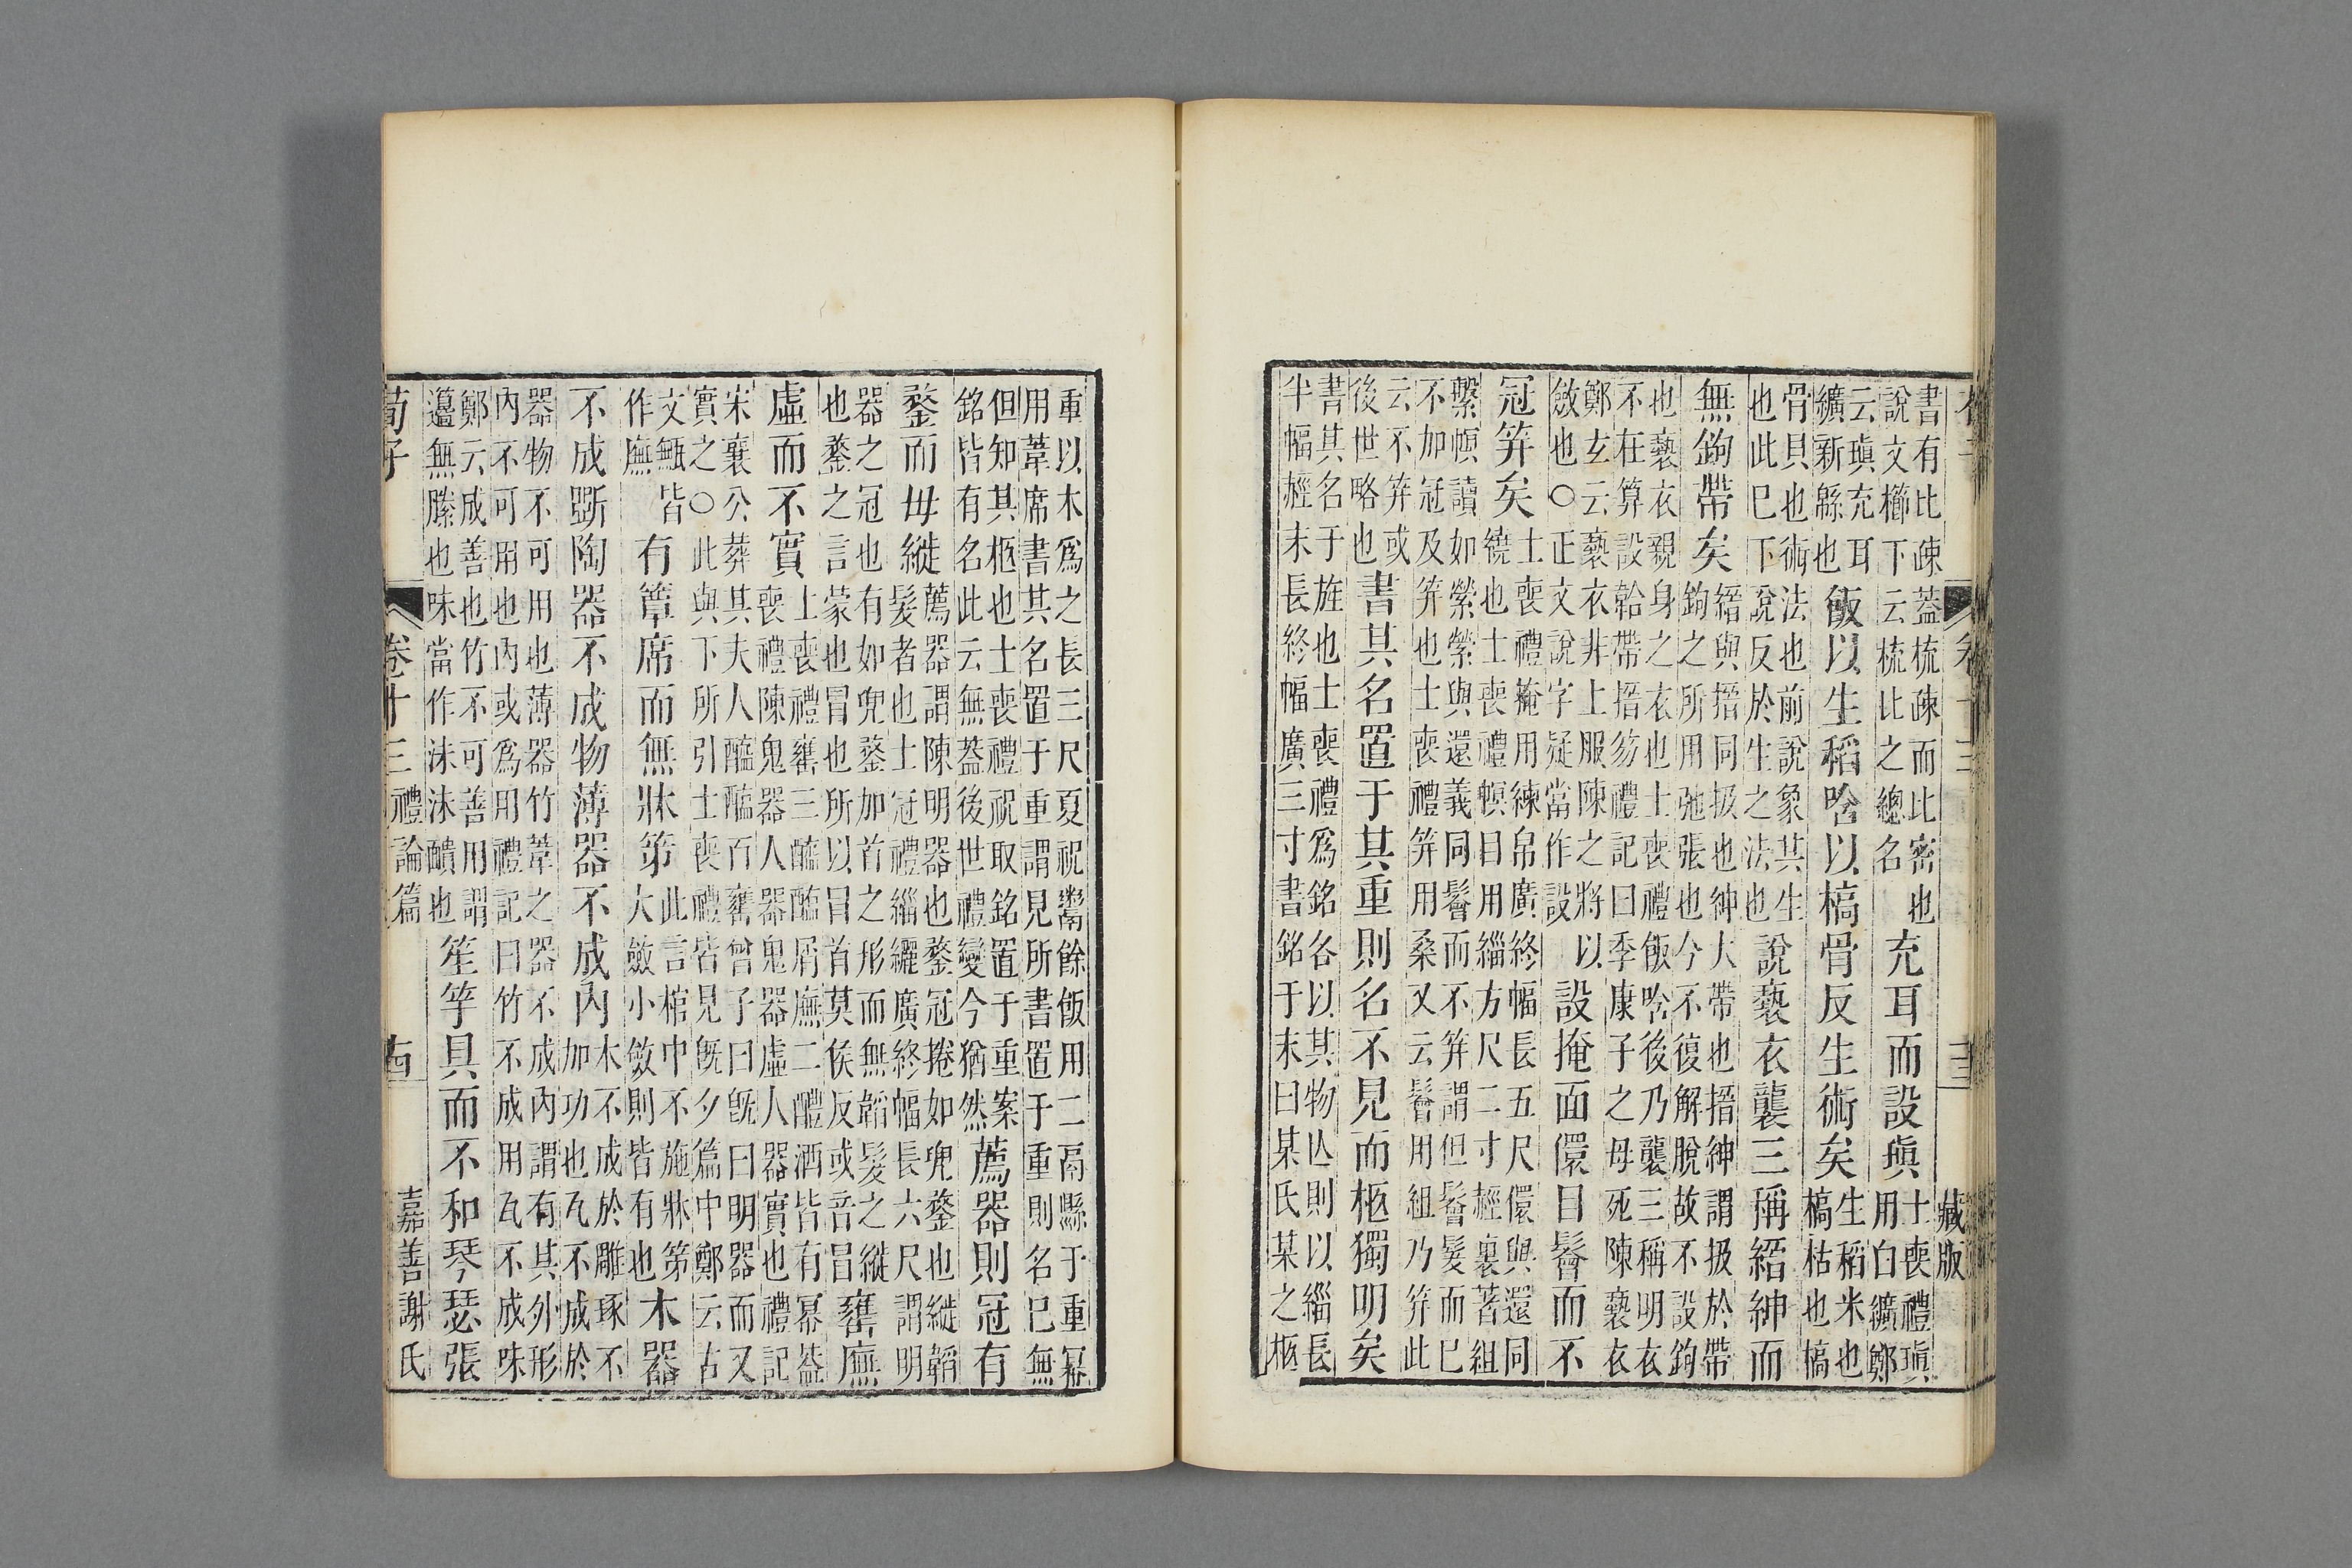 書有比疎蓋梳疎而比密也
說文櫛下云梳比之總名
充耳而設瑱
士喪禮瑱
用白纊鄭
云瑱充耳
纊新緜也
飯以生稻唅以槁骨反生術矣
生稻米也
槁枯也槁
骨貝也術法也前說象其生
也此巳下說反於生之法也
說褻衣襲三稱縉紳而
無鉤帶矣
縉與搢同扱也紳大帶也搢紳謂扱於帶
鉤之所用弛張也今不復解脫故不設鉤
也褻衣親身之衣也士喪禮飯唅後乃襲三稱明衣
不在算設韐帶搢笏禮記曰季康子之母死陳褻衣
鄭玄云褻衣非上服陳之將以
斂也○正文說字疑當作設
設掩面儇目鬠而不
冠笄矣
士喪禮掩用練帛廣終幅長五尺儇與還同
繞也士喪禮幎目用緇方尺二寸經裏著組
繫幎讀如縈縈與還義同鬠而不笄謂但鬠髮而巳
不加冠及笄也士喪禮笄用桑又云鬠用組乃笄此
云不笄或
後世略也
書其名置于其重則名不見而柩獨明矣
書其名于旌也士喪禮爲銘各以其物亾則以緇長
半幅經末長終幅廣三寸書銘于末曰某氏某之柩
藏版
重以木爲之長三尺夏祝鬻餘飯用二鬲縣于重冪
用葦席書其名置于重謂見所書置于重則名巳無
但知其柩也士喪禮祝取銘置于重案
銘皆有名此云無蓋後世禮變今猶然
薦器則冠有
鍪而毋縰
薦器謂陳明器也鍪冠捲如兜鍪也縰韜
髮者也士冠禮緇纚廣終幅長六尺謂明
器之冠也有如兜鍪加首之形而無韜髮之縰
也鍪之言蒙也冒也所以冒首莫侯反或音冒
罋廡
虛而不實
士喪禮罋三醯醢屑廡二醴酒皆有冪蓋
喪禮陳鬼器人器鬼器虛人器實也禮記
宋襄公葬其夫人醯醢百罋曾子曰旣曰明器而又
實之○此與下所引士喪禮皆見旣夕篇中鄭云古
文甒皆
作廡
有簟席而無牀笫
此言棺中不施牀笫
大斂小斂則皆有也
木器
不成斲陶器不成物薄器不成內
木不成於雕琢不
加功也瓦不成於
器物不可用也薄器竹葦之器不成內謂有其外形
內不可用也內或爲用禮記曰竹不成用瓦不成味
鄭云成善也竹不可善用謂
邊無縢也味當作沬沬靧也
笙竽具而不和琴瑟張
荀子
卷十三禮論篇
十四
嘉善謝氏